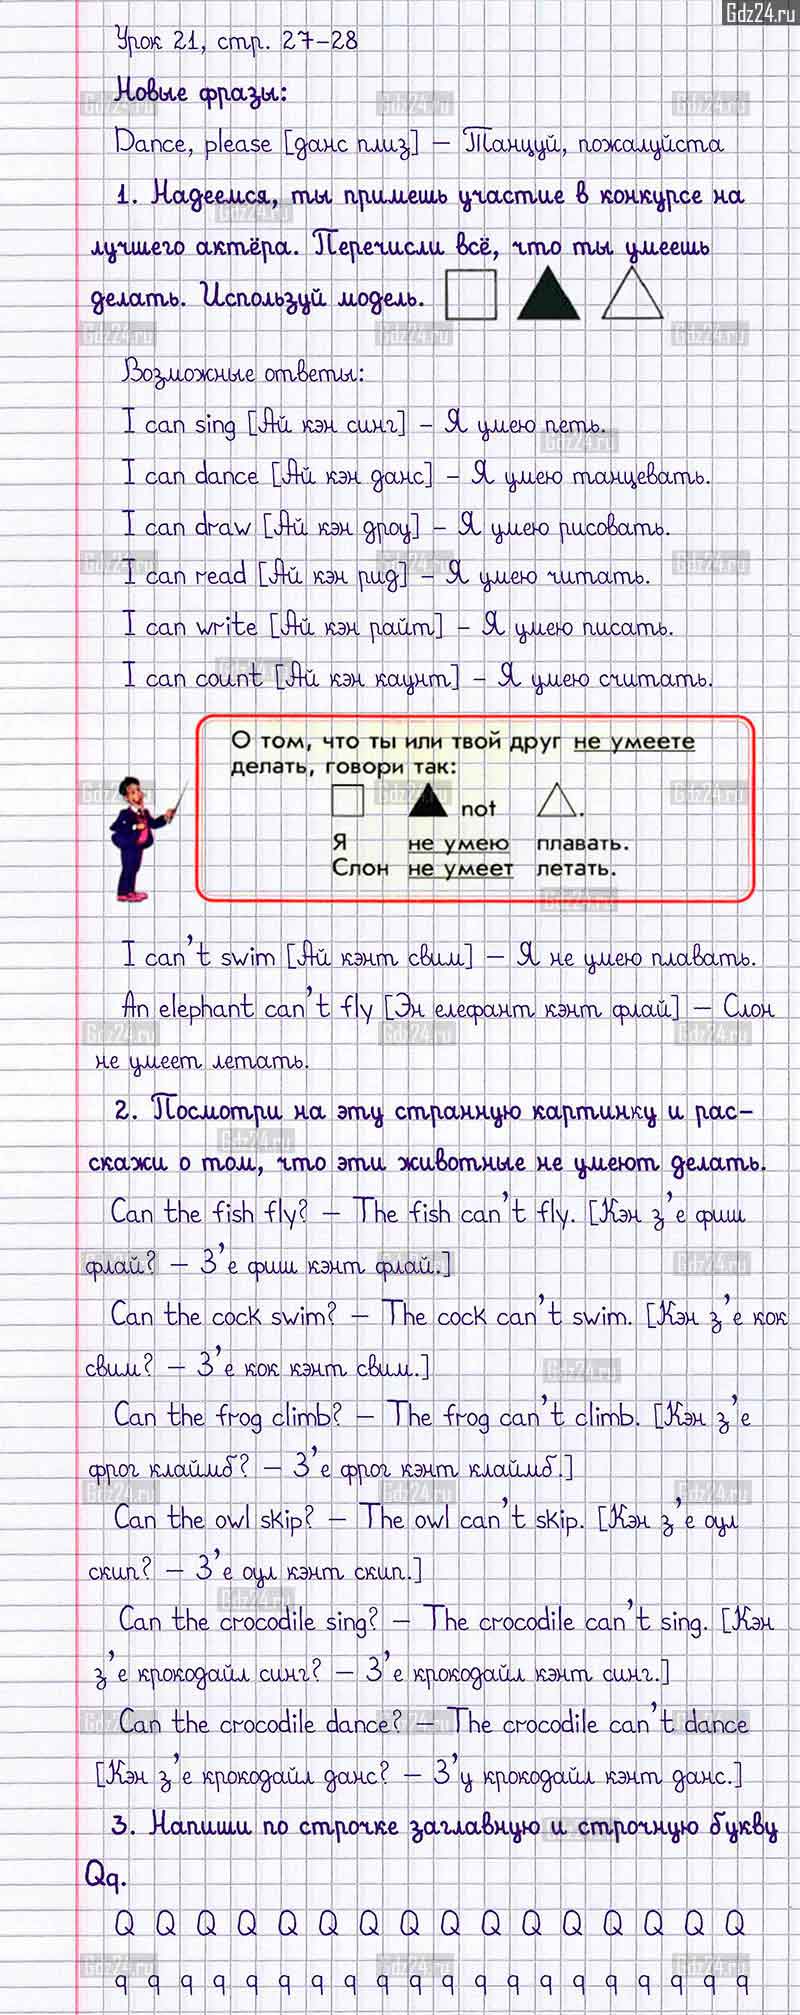 Gdz24.ru
Урок 21, стр. 27-28
Новые фразы:
Dance, please [данс плиз] – Танцуй, пожалуйста
1. Надеемся, ты примешь участие в конкурсе на
лучшего актёра. Перечисли всё, что ты умеешь
делать. Используй модель.
Возможные ответы:
I can sing [Ай кэн синг] – Я умею петь.
I can dance [Ай кэн данс] – Я умею танцевать.
I can draw [Ай кэн дроу] – Я умею рисовать.
I can read [Ай кэн рид] – Я умею читать.
I can write [Ай кэн райт] – Я умею писать.
I can count [Ай кэн каунт] – Я умею считать.
О том, что ты или твой друг не умеете
делать, говори так:
not .
Я не умею плавать.
Слон не умеет летать.
I can't swim [Ай кэнт свим] – Я не умею плавать.
An elephant can't fly [Эн елефант кэнт флай] – Слон
не умеет летать.
2. Посмотри на эту странную картинку и рас-
скажи о том, что эти животные не умеют делать.
Can the fish fly? – The fish can't fly. [Кэн з'е фиш
флай? – З'е фиш кэнт флай.]
Can the cock swim? – The cock can't swim. [Кэн з'е кок
свим? – З'е кок кэнт свим.]
Can the frog climb? – The frog can't climb. [Кэн з'е
фрог клаймб? – З'е фрог кэнт клаймб.]
Can the owl skip? – The owl can't skip. [Кэн з'е оул
скип? – З'е оул кэнт скип.]
Can the crocodile sing? – The crocodile can't sing. [Кэн
з'е крокодайл синг? – З'е крокодайл кэнт синг.]
Can the crocodile dance? – The crocodile can't dance
[Кэн з'е крокодайл данс? – З'у крокодайл кэнт данс.]
3. Напиши по строчке заглавную и строчную букву
Qq.
Q Q Q Q Q Q Q Q Q Q Q Q Q Q Q Q
q q q q q q q q q q q q q q q q q q q q